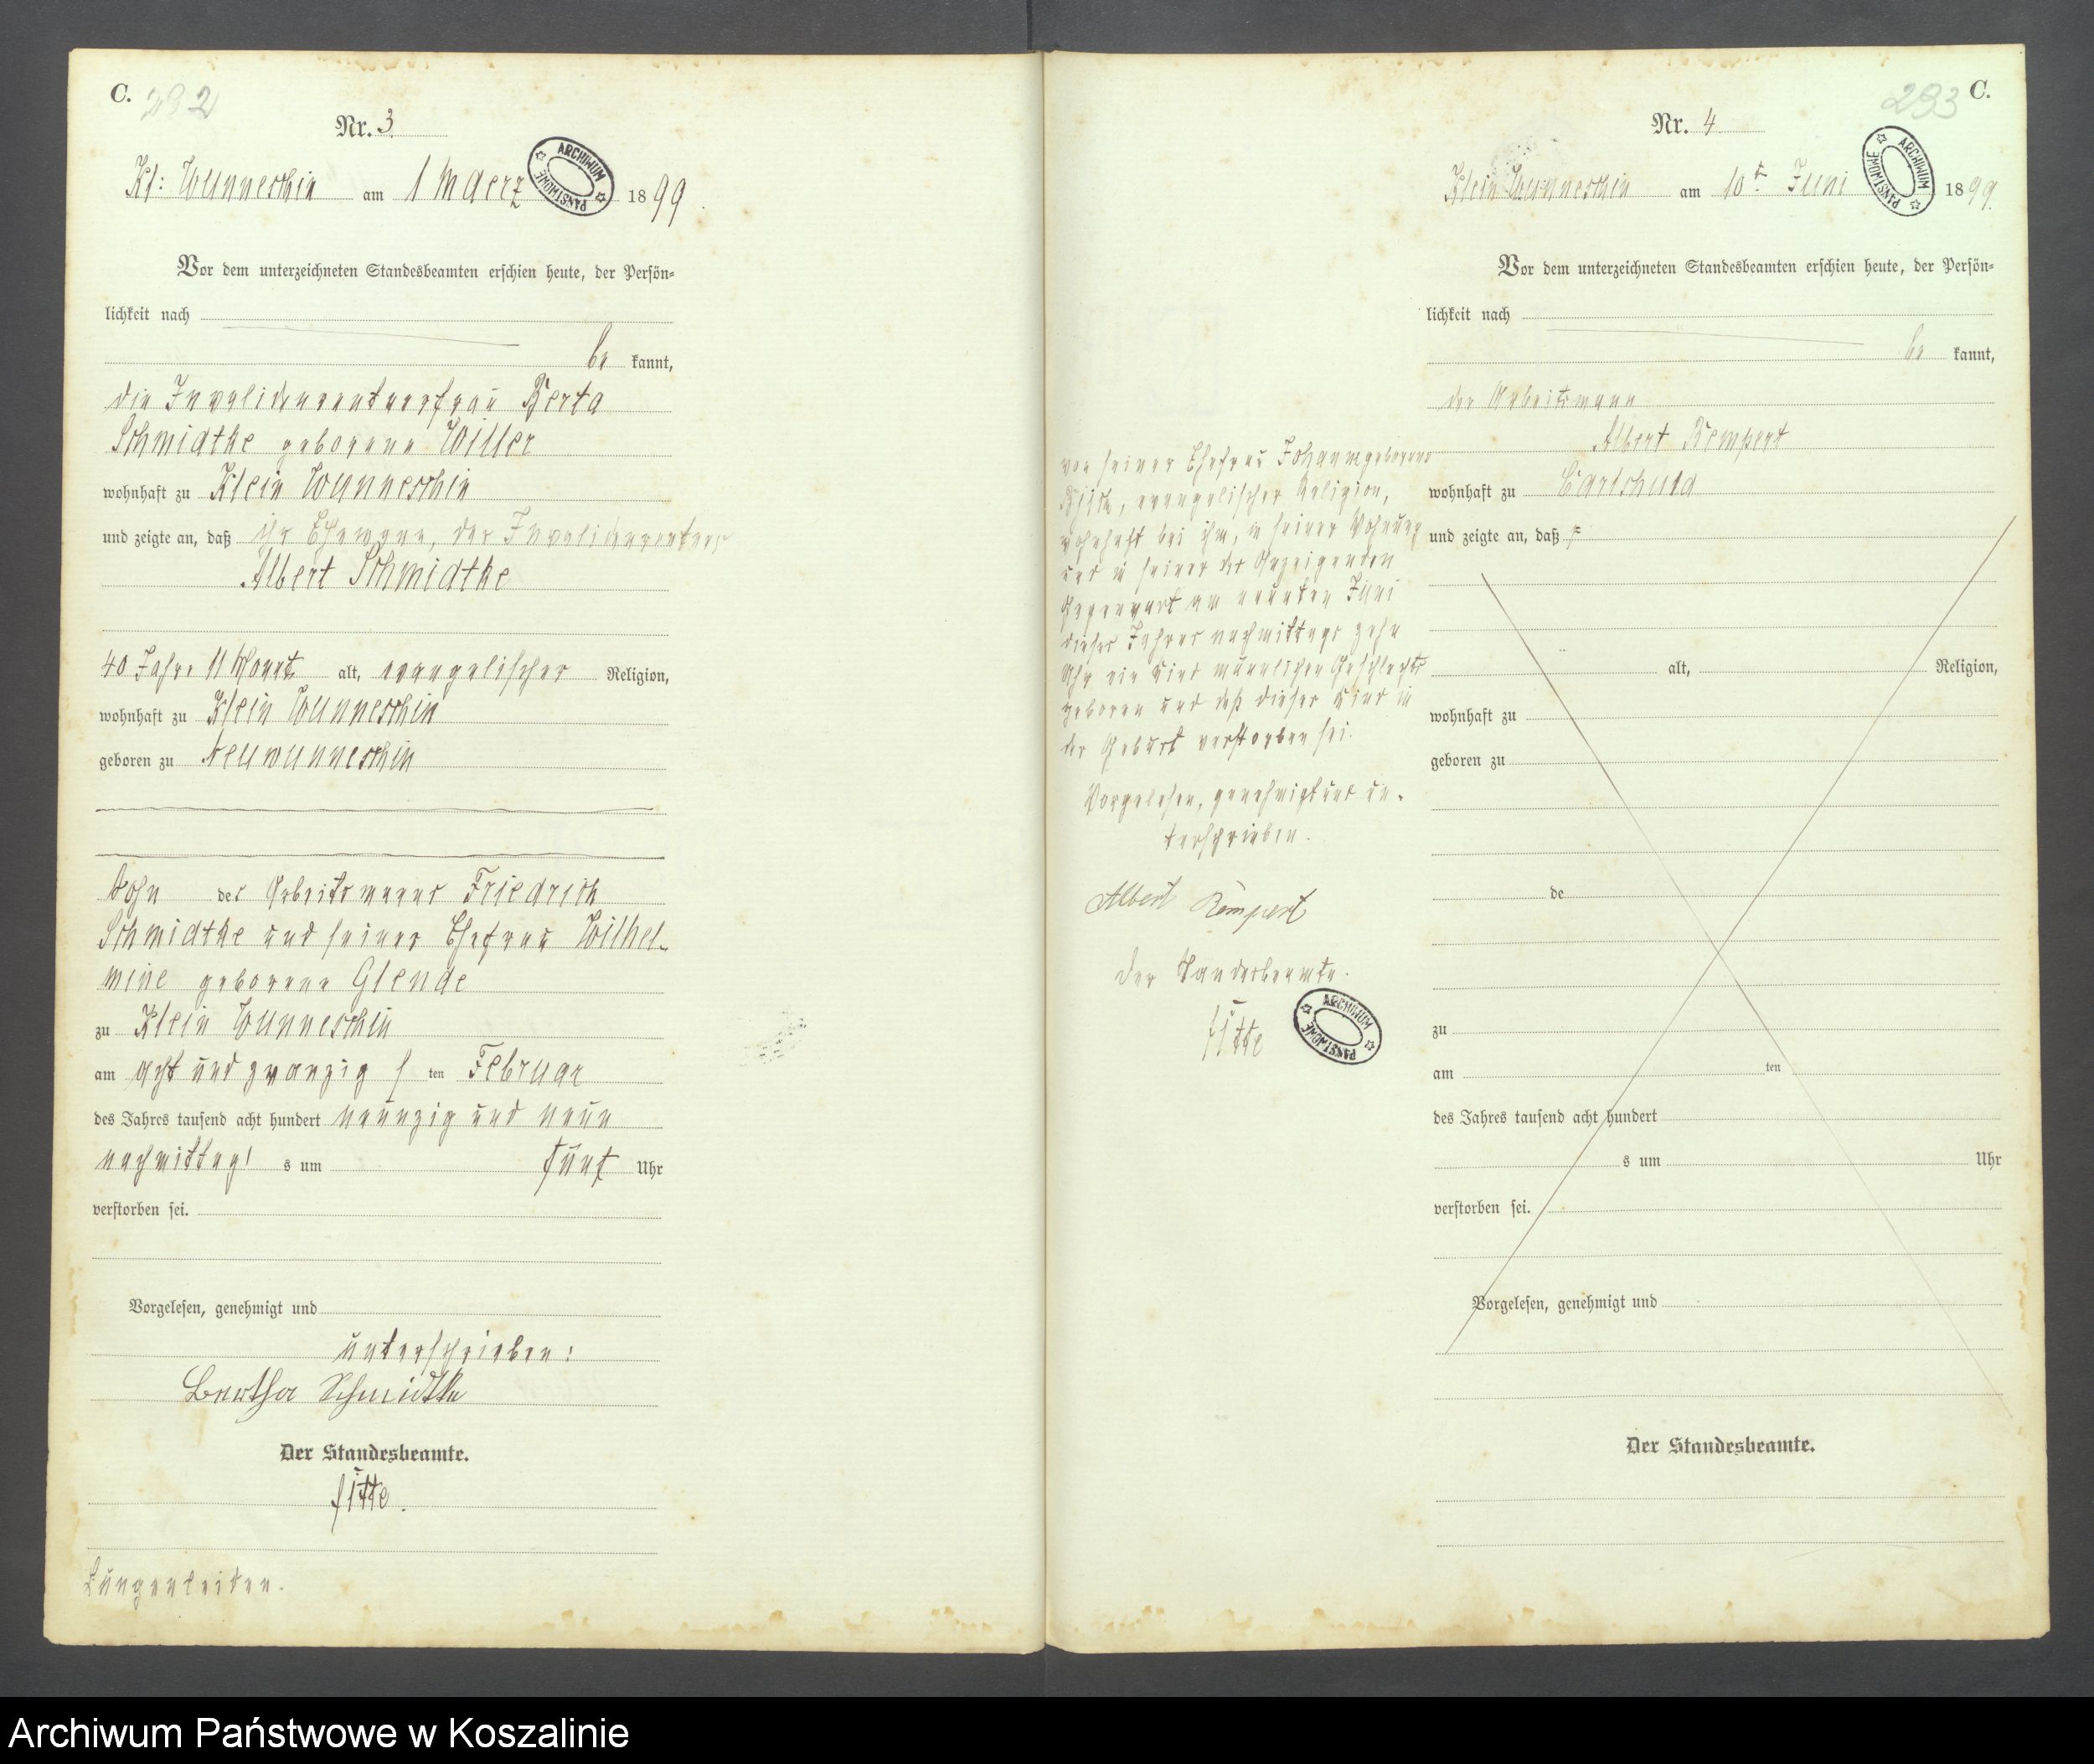 C. 232
Nr. 3.
Kl: Wunneschin am 1 Maerz 1899.
ARCHIWUM PAŃSTWOWE
Vor dem unterzeichneten Standesbeamten erschien heute, der Persön=
lichkeit nach
be kannt,
die Invalidenrentnerfrau Berta
Schmidtke geborene Willer
wohnhaft zu Klein Wunneschin
und zeigte an, daß ihr Ehemann, der Invalidenrentner
Albert Schmidtke
40 Jahre 11 Monate alt, evangelischer Religion,
wohnhaft zu Klein Wunneschin
geboren zu Neuwunneschin
Sohn des Arbeitsmanns Friedrich
Schmidtke und seiner Ehefrau Wilhel-
mine geborene Glende
zu Klein Wunneschin
am acht und zwanzig s ten Februar
des Jahres tausend acht hundert neunzig und neun
nachmittag s um fünf Uhr
verstorben sei.
Vorgelesen, genehmigt und
unterschrieben:
Bertha Schmidtke
Der Standesbeamte.
Lungenleiden.
C. 233
Nr. 4
Klein Wunneschin am 10t. Juni 1899.
ARCHIWUM PAŃSTWOWE
Vor dem unterzeichneten Standesbeamten erschien heute, der Persön=
lichkeit nach
be kannt,
der Arbeitsmann
Albert Rempert
wohnhaft zu
und zeigte an, daß
von seiner Ehefrau Johann geborene
evangelischer Religion,
wohnhaft bei ihm, in seiner Wohnung
und in seiner des Anzeigenden
Gegenwart am neunten Juni
dieses Jahres nachmittags zehn
Uhr ein Kind männlichen Geschlechts
geboren und daß dieses Kind in
der Geburt verstorben sei.
Vorgelesen, genehmigt und un-
terschrieben.
Albert Rempert
Der Standesbeamte.
ARCHIWUM PAŃSTWOWE
alt, Religion,
wohnhaft zu
geboren zu
de
zu
am ten
des Jahres tausend acht hundert
s um Uhr
verstorben sei.
Vorgelesen, genehmigt und
Der Standesbeamte.
Archiwum Państwowe w Koszalinie